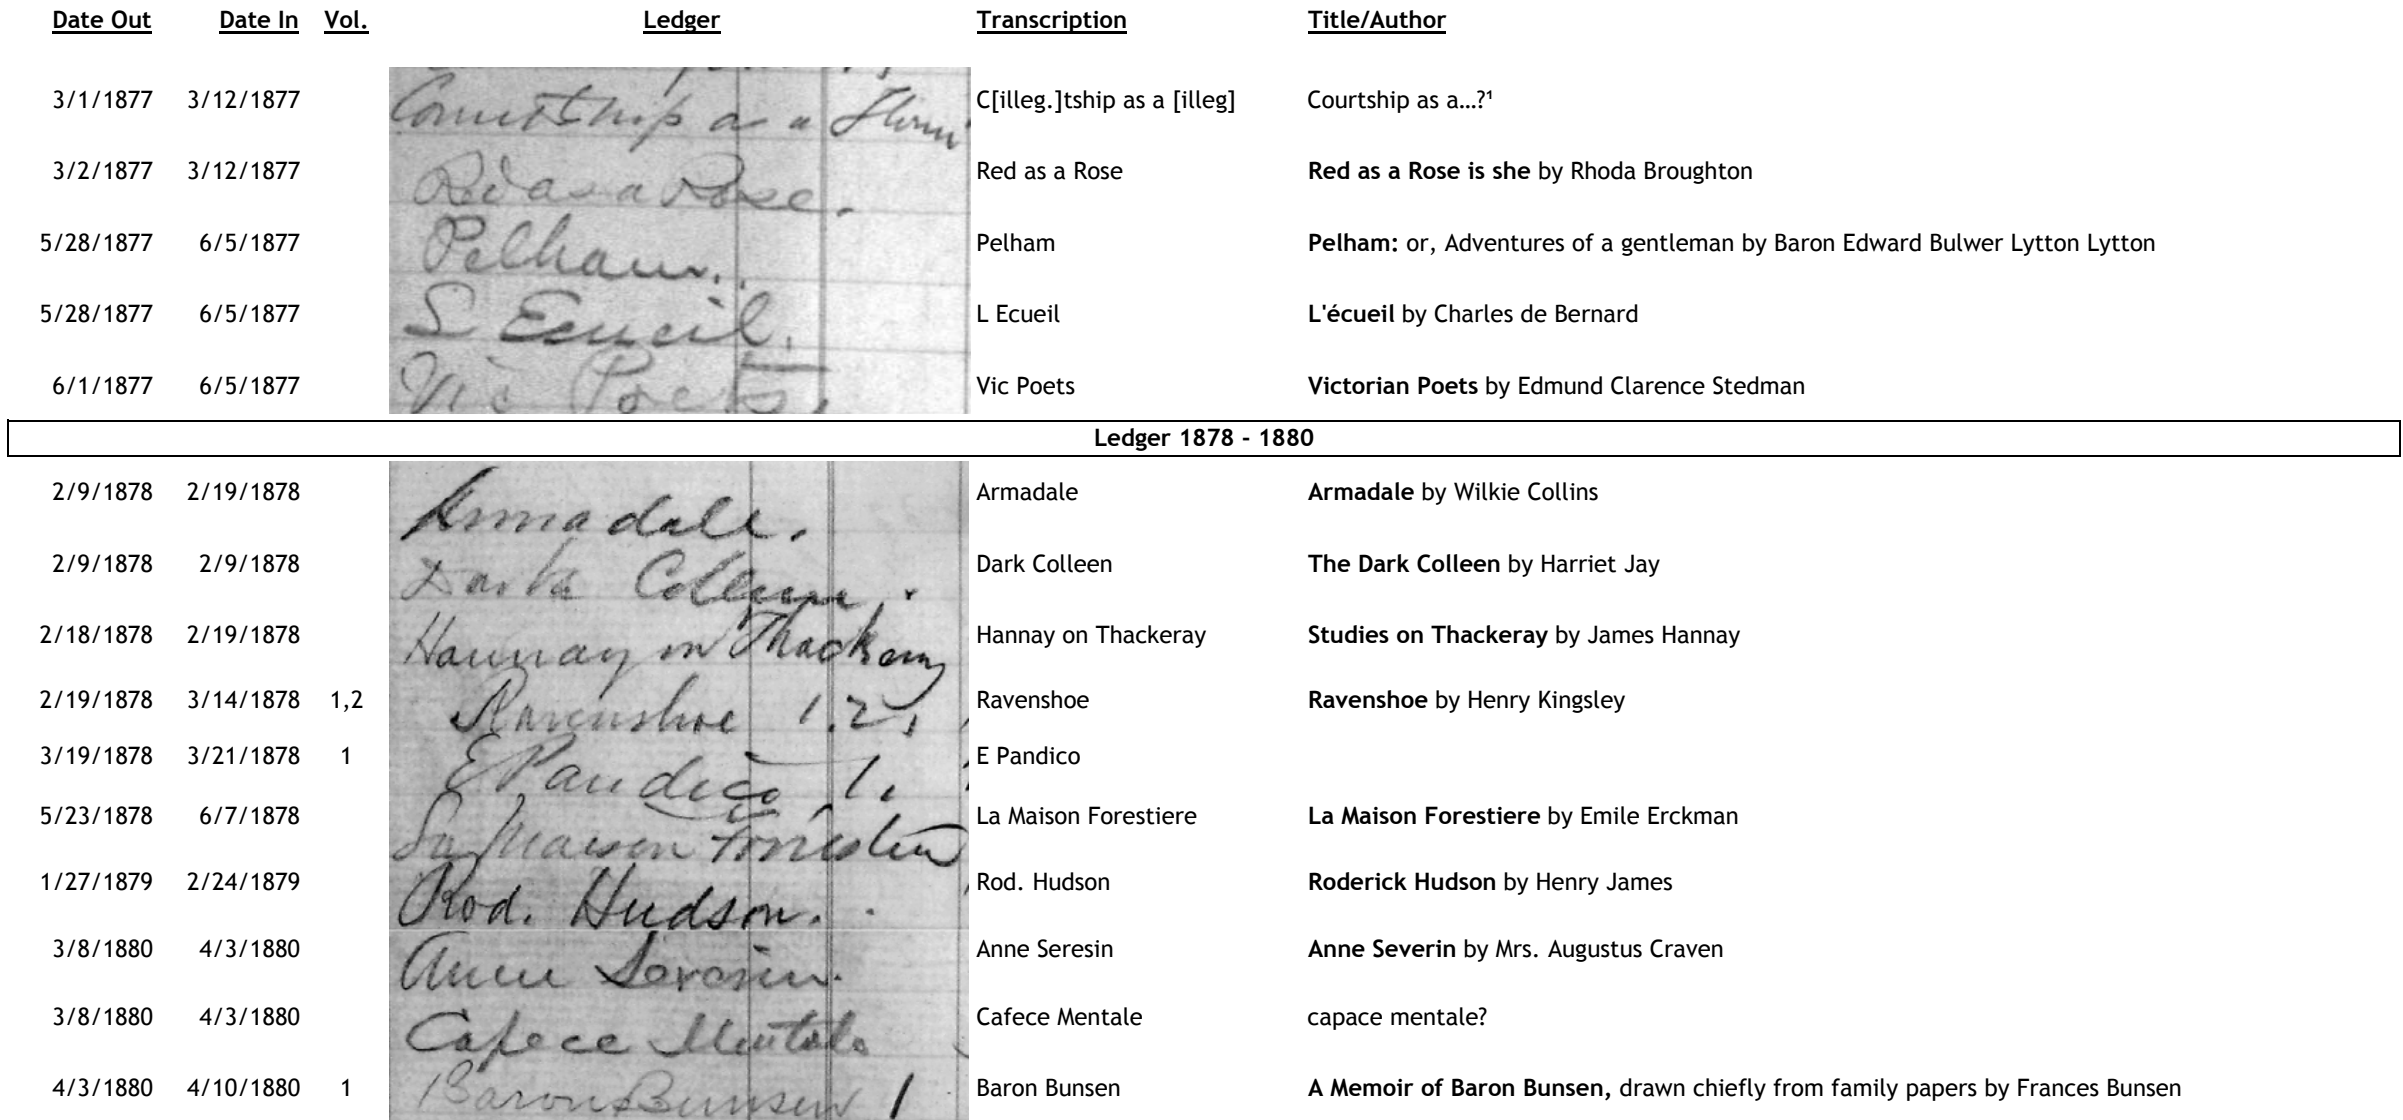 Date Out Date In Vol. Ledger Transcription Title/Author
3/1/1877 3/12/1877 as a C[illeg.]tship as a [illeg] Courtship as a…?¹
3/2/1877 3/12/1877 Red as a Rose. Red as a Rose Red as a Rose is she by Rhoda Broughton
5/28/1877 6/5/1877 Pelham. Pelham Pelham: or, Adventures of a gentleman by Baron Edward Bulwer Lytton Lytton
5/28/1877 6/5/1877 L Ecueil. L Ecueil L'écueil by Charles de Bernard
6/1/1877 6/5/1877 Vic Poets. Vic Poets Victorian Poets by Edmund Clarence Stedman
Ledger 1878 - 1880
2/9/1878 2/19/1878 Armadale. Armadale Armadale by Wilkie Collins
2/9/1878 2/9/1878 Dark Colleen. Dark Colleen The Dark Colleen by Harriet Jay
2/18/1878 2/19/1878 Hannay on Thackeray Hannay on Thackeray Studies on Thackeray by James Hannay
2/19/1878 3/14/1878 1,2 Ravenshoe 1.2. Ravenshoe Ravenshoe by Henry Kingsley
3/19/1878 3/21/1878 1 E Pandico 1. E Pandico
5/23/1878 6/7/1878 La Maison La Maison Forestiere La Maison Forestiere by Emile Erckman
1/27/1879 2/24/1879 Rod. Hudson. Rod. Hudson Roderick Hudson by Henry James
3/8/1880 4/3/1880 Anne Anne Seresin Anne Severin by Mrs. Augustus Craven
3/8/1880 4/3/1880 Cafece Mentale Cafece Mentale capace mentale?
4/3/1880 4/10/1880 1 Baron Bunsen 1 Baron Bunsen A Memoir of Baron Bunsen, drawn chiefly from family papers by Frances Bunsen